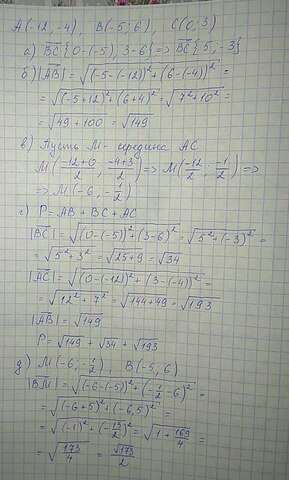 A(-12,-4), B(-5;6), C(0;3)
а) BC{0-(-5), 3-6} => BC{5,-3}
б) |AB| = √((-5-(-12))²+(6-(-4))²) =
= √((-5+12)²+(6+4)²) = √(7²+10²) =
= √(49+100) = √149
в) Пусть M- середина AC
M((-12+0)/2, (-4+3)/2) => M(-12/2, -1/2) =>
=> M(-6,-1/2)
г) P=AB+BC+AC
|BC| = √((0-(-5))²+(3-6)²) = √(5²+(-3)²) =
= √(5²+3²) = √(25+9) = √34
|AC| = √((0-(-12))²+(3-(-4))²) =
= √(12²+7²) = √(144+49) = √193
|AB| = √149
P= √149 + √34 + √193
д) M(-6;-1/2), B(-5,6)
|BM| = √((-6-(-5))²+(-1/2-6)²) =
= √((-6+5)²+(-6,5)²) =
= √((-1)²+(-13/2)²) = √(1+169/4) =
= √(173/4) = √173/2